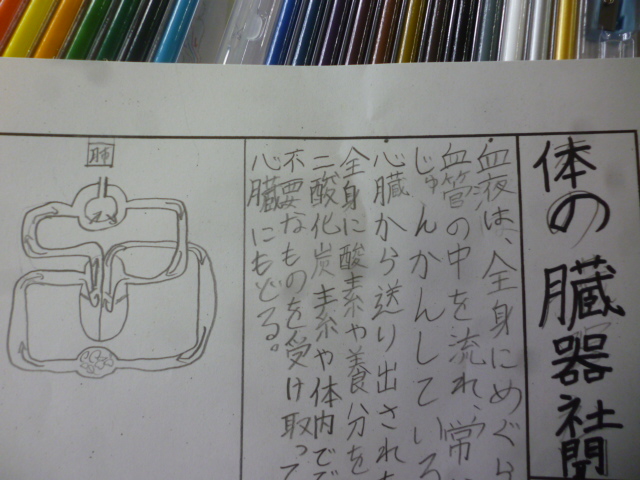 体の臓器社聞
血液は、全身にめぐら
血管の中を流れ、常に
じゅんかんしている
心臓から送り出された
全身に酸素や養分を
二酸化炭素や体内でで
不要なものを受け取って
心臓にもどる。
肺